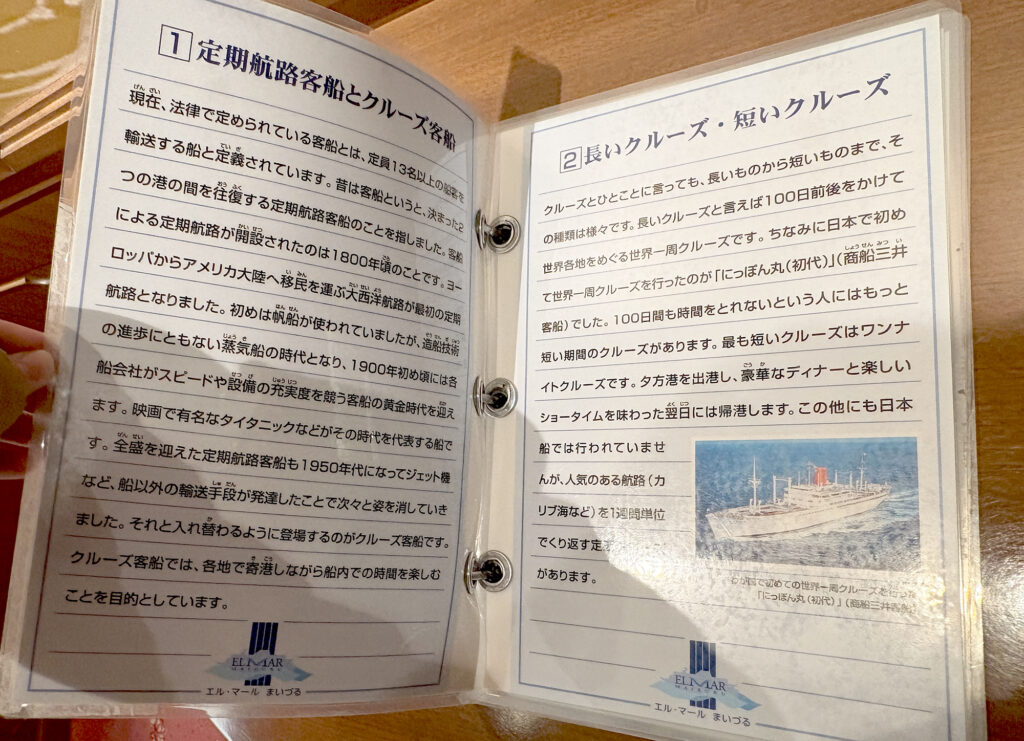 1 定期航路客船とクルーズ客船
現在、法律で定められている客船とは、定員13名以上の船客を
輸送する船と定義されています。昔は客船というと、決まった2
つの港の間を往復する定期航路客船のことを指しました。客船
による定期航路が開設されたのは1800年頃のことです。ヨー
ロッパからアメリカ大陸へ移民を運ぶ大西洋航路が最初の定期
航路となりました。初めは帆船が使われていましたが、造船技術
の進歩にともない蒸気船の時代となり、1900年初め頃には各
船会社がスピードや設備の充実度を競う客船の黄金時代を迎え
ます。映画で有名なタイタニックなどがその時代を代表する船で
す。全盛を迎えた定期航路客船も1950年代になってジェット機
など、船以外の輸送手段が発達したことで次々と姿を消していき
ました。それと入れ替わるように登場するのがクルーズ客船です。
クルーズ客船では、各地で寄港しながら船内での時間を楽しむ
ことを目的としています。
ELMAR
MAIZURU
エル・マール まいづる
2 長いクルーズ・短いクルーズ
クルーズとひとことに言っても、長いものから短いものまで、そ
の種類は様々です。長いクルーズと言えば100日前後をかけて
世界各地をめぐる世界一周クルーズです。ちなみに日本で初め
て世界一周クルーズを行ったのが「にっぽん丸(初代)」(商船三井
客船)でした。100日間も時間をとれないという人にはもっと
短い期間のクルーズがあります。最も短いクルーズはワンナ
イトクルーズです。夕方港を出港し、豪華なディナーと楽しい
ショータイムを味わった翌日には帰港します。この他にも日本
船では行われていませ
んが、人気のある航路(カ
リブ海など)を1週間単位
でくり返す定
があります。
わが国で初めての世界一周クルーズを行った
「にっぽん丸(初代)」(商船三井客船)
ELMAR
MAIZURU
エル・マール まいづる